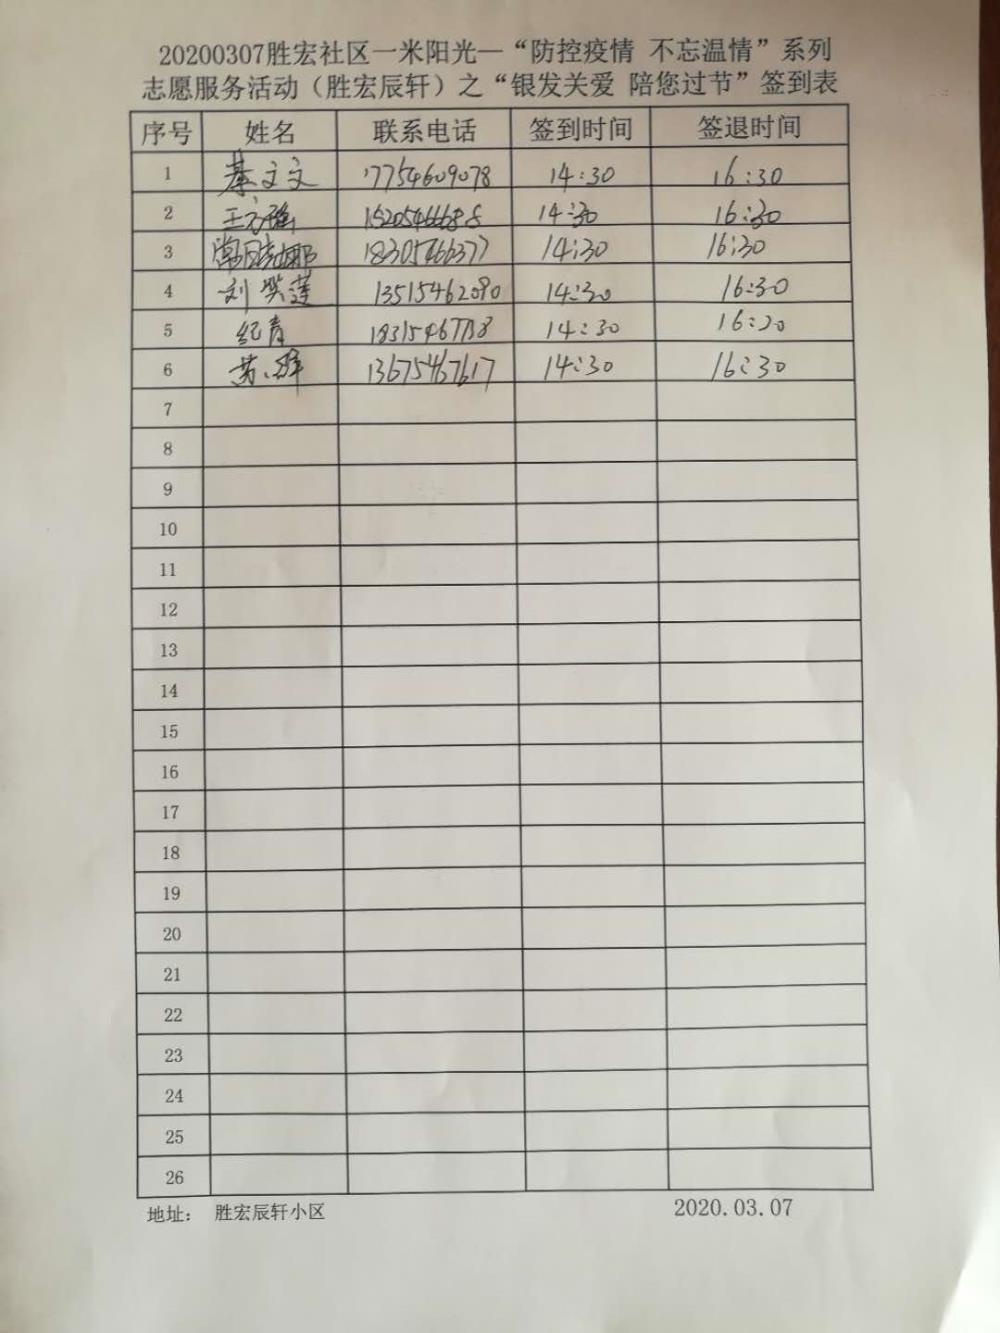 20200307胜宏社区一米阳光—“防控疫情 不忘温情”系列
志愿服务活动（胜宏辰轩）之“银发关爱 陪您过节”签到表
序号 姓名 联系电话 签到时间 签退时间
1 綦文文 17754609078 14:30 16:30
2 王 14:30 16:30
3 18305466377 14:30 16:30
4 刘笑莲 13515462090 14:30 16:30
5 纪青 14:30 16:20
6 黄 13675467617 14:30 16:30
7
8
9
10
11
12
13
14
15
16
17
18
19
20
21
22
23
24
25
26
地址： 胜宏辰轩小区 2020.03.07